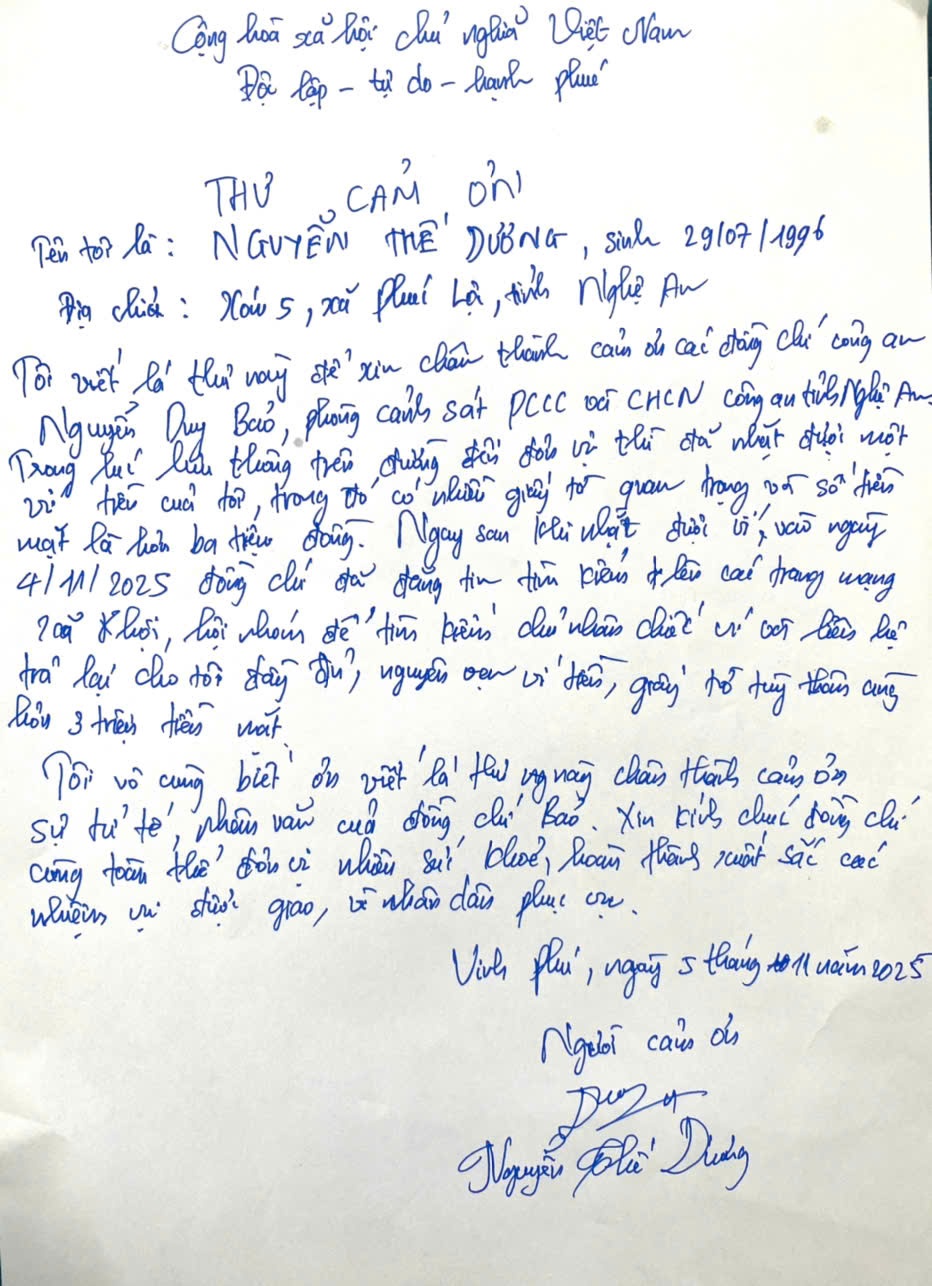 Cộng hoà xã hội chủ nghĩa Việt Nam
Độc lập - tự do - hạnh phúc
THƯ CẢM ƠN
Tên tôi là : NGUYỄN THẾ DƯƠNG, sinh 29/07/1996
Địa chỉ : Xóm 5, xã Phúc Lộc, tỉnh Nghệ An
Tôi viết lá thư này để xin chân thành cảm ơn các đồng chí công an
Nguyễn Duy Bảo, phòng cảnh sát PCCC và CHCN công an tỉnh Nghệ An.
Trong lúc lưu thông trên đường đến đơn vị thì đã nhặt được một
ví tiền của tôi, trong đó có nhiều giấy tờ quan trọng và số tiền
mặt là hơn ba triệu đồng. Ngay sau khi nhặt được ví, vào ngày
4/11/2025 đồng chí đã đăng tin tìm kiếm lên các trang mạng
xã hội, hội nhóm để tìm kiếm chủ nhân chiếc ví và liên hệ
trả lại cho tôi đầy đủ, nguyên vẹn ví tiền, giấy tờ tuỳ thân cùng
hơn 3 triệu tiền mặt.
Tôi vô cùng biết ơn viết lá thư này chân thành cảm ơn
sự tử tế, nhân văn của đồng chí Bảo. Xin kính chúc đồng chí
cùng toàn thể đơn vị nhiều sức khoẻ, hoàn thành xuất sắc các
nhiệm vụ được giao, vì nhân dân phục vụ.
Vinh Phú, ngày 5 tháng 11 năm 2025
Người cảm ơn
Nguyễn Thế Dương